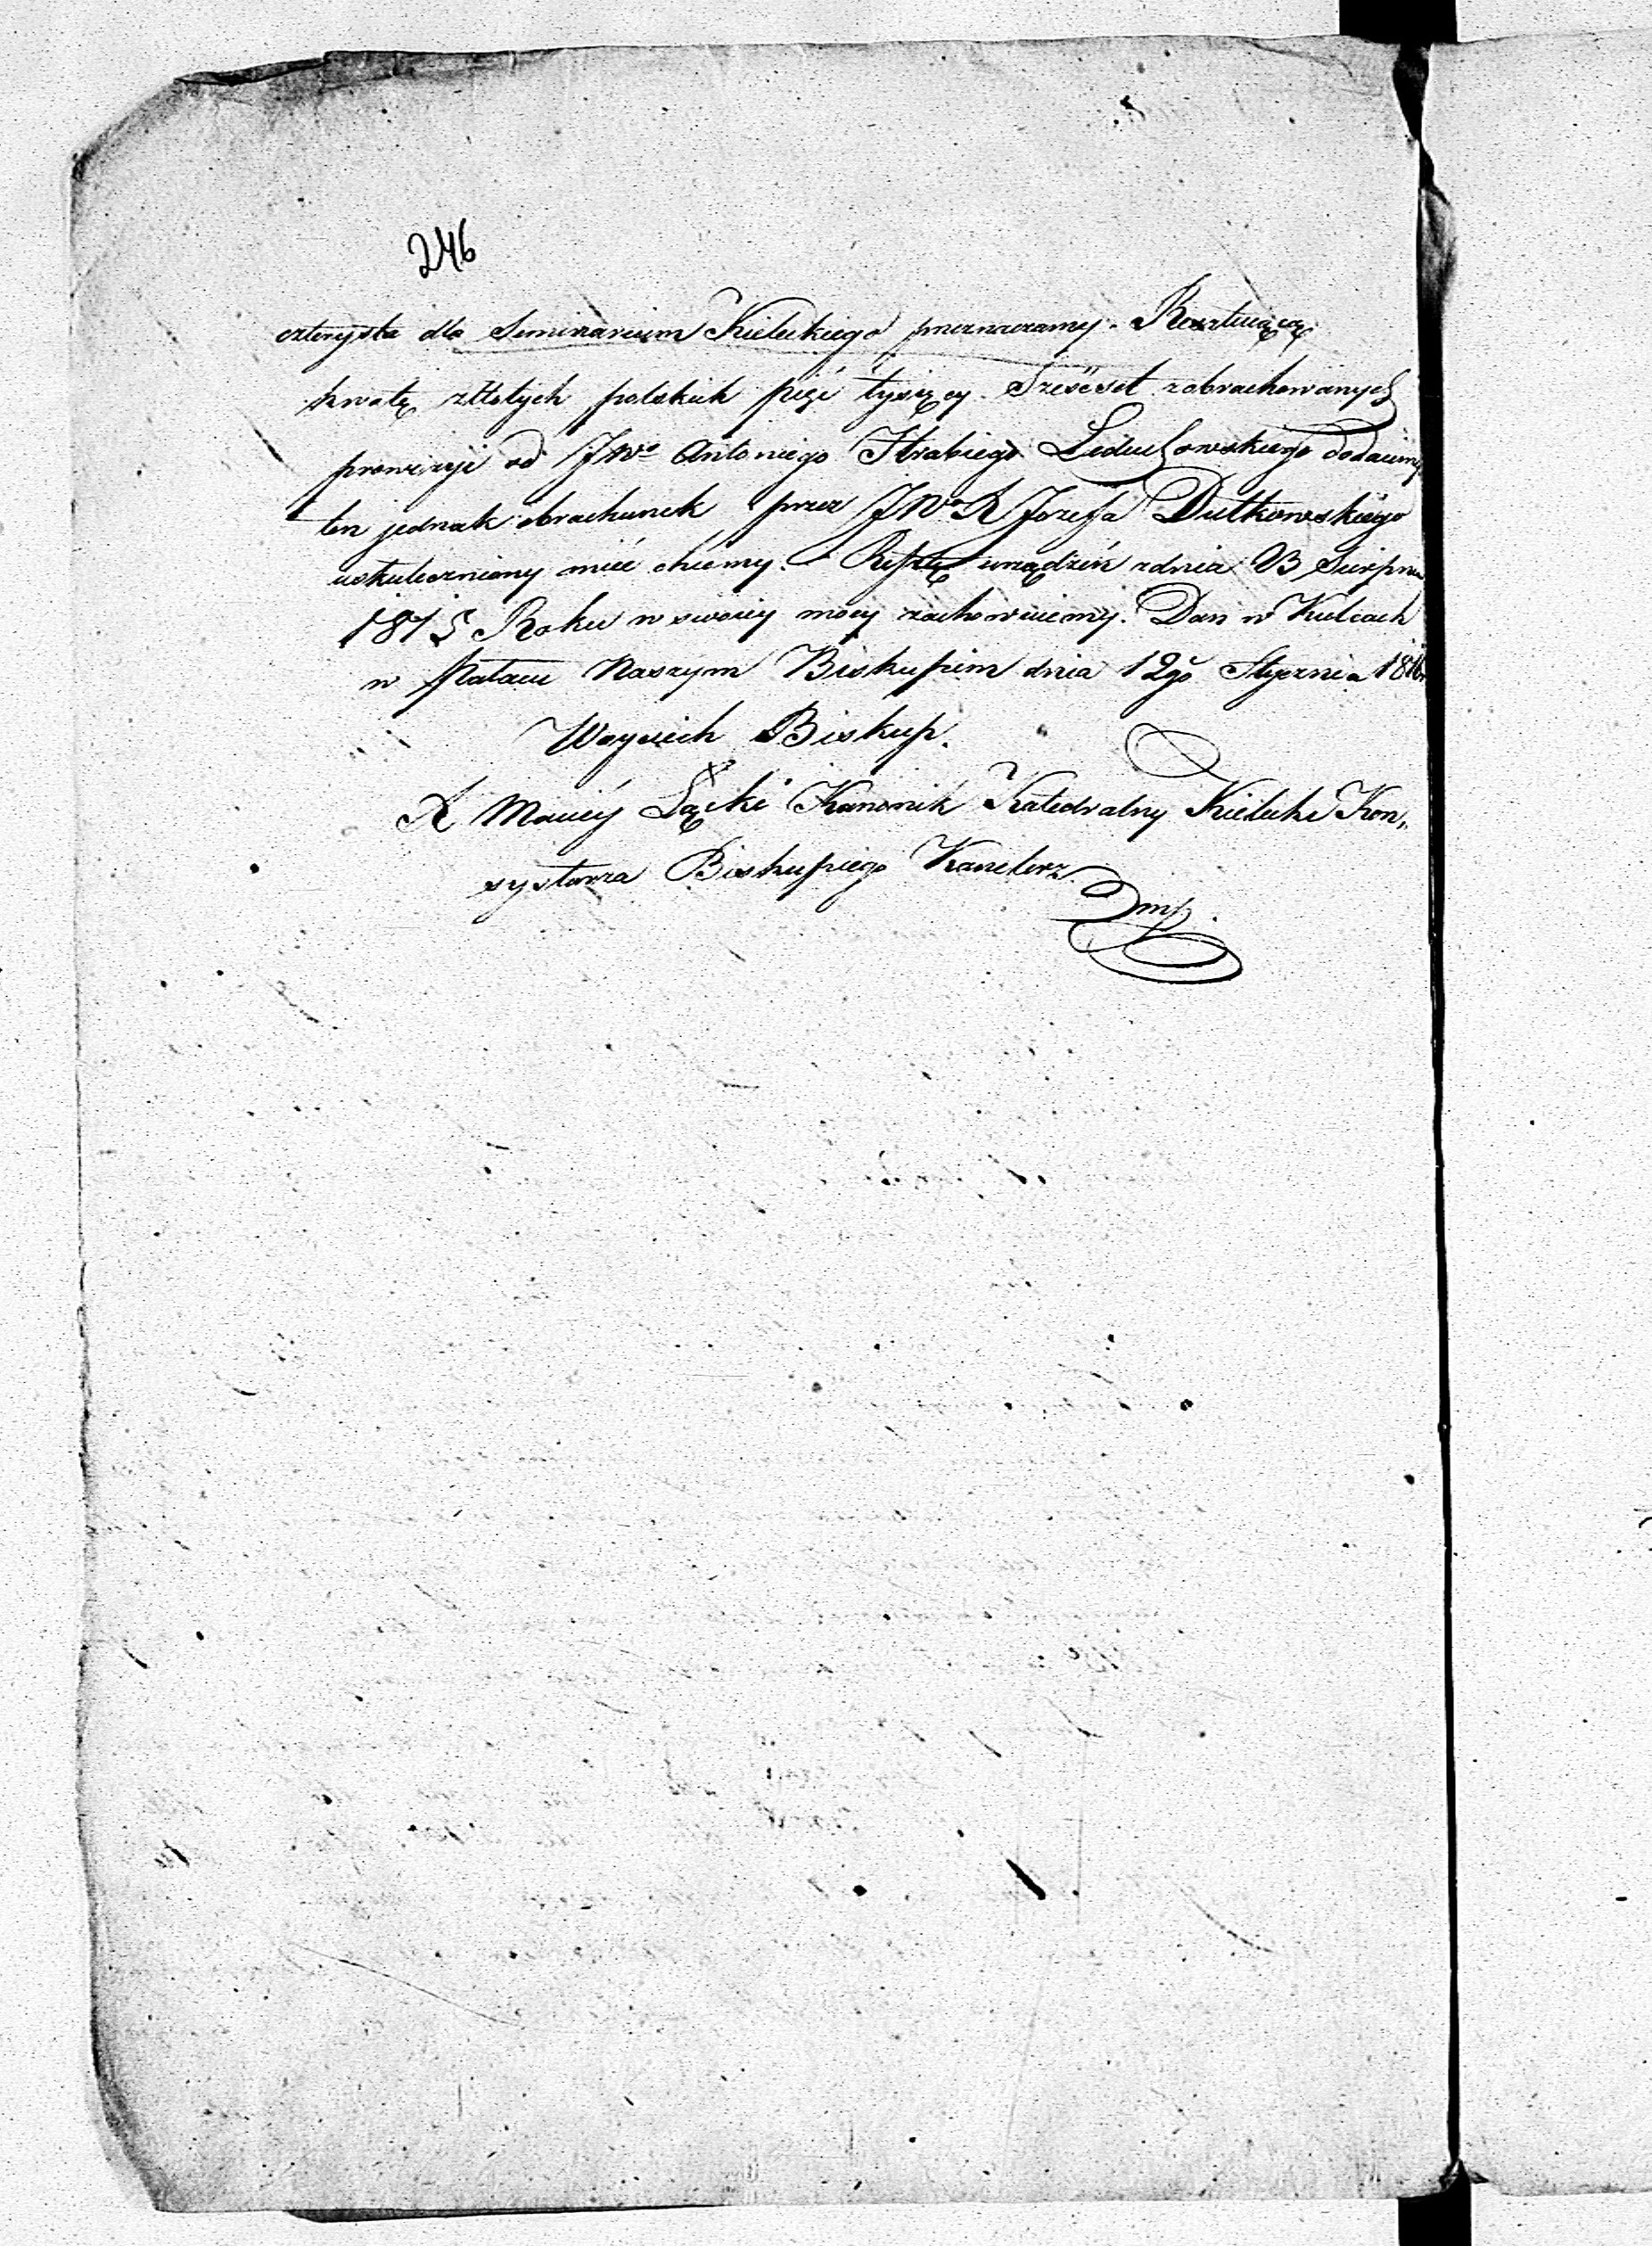 246
czterysta dla Seminarium Kieleckiego przeznaczamy. Resztuiącą
kwotę złłotych polskich pięć tysięcy Sześćset zobrachowanych
prowizyi od JWo Antoniego Hrabiego Leduchowskiego dodaiemy
ten jednak obrachunek przez JWo X Jozefa Dutkowskiego
uskuteczniony mieć chcemy. Resztę urządzeń zdnia 23 Sierpnia
1815 Roku w swoiey mocy zachowuiemy. Dan w Kielcach
w Pałacu Naszym Biskupim dnia 12go Stycznia 1816r
Woyciech Biskup.
X Maciey Łącki Kanonik Katedralny Kielecki Kon„
systorza Biskupiego Kanclerz
mp.